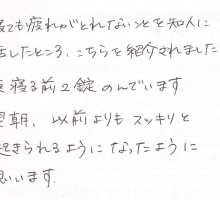 ても疲れがとれないことを知人に
話したところ、こちらを紹介されました
寝る前2錠のんでいます.
翌朝、以前よりもスッキリと
起きられるようになったように
思います.